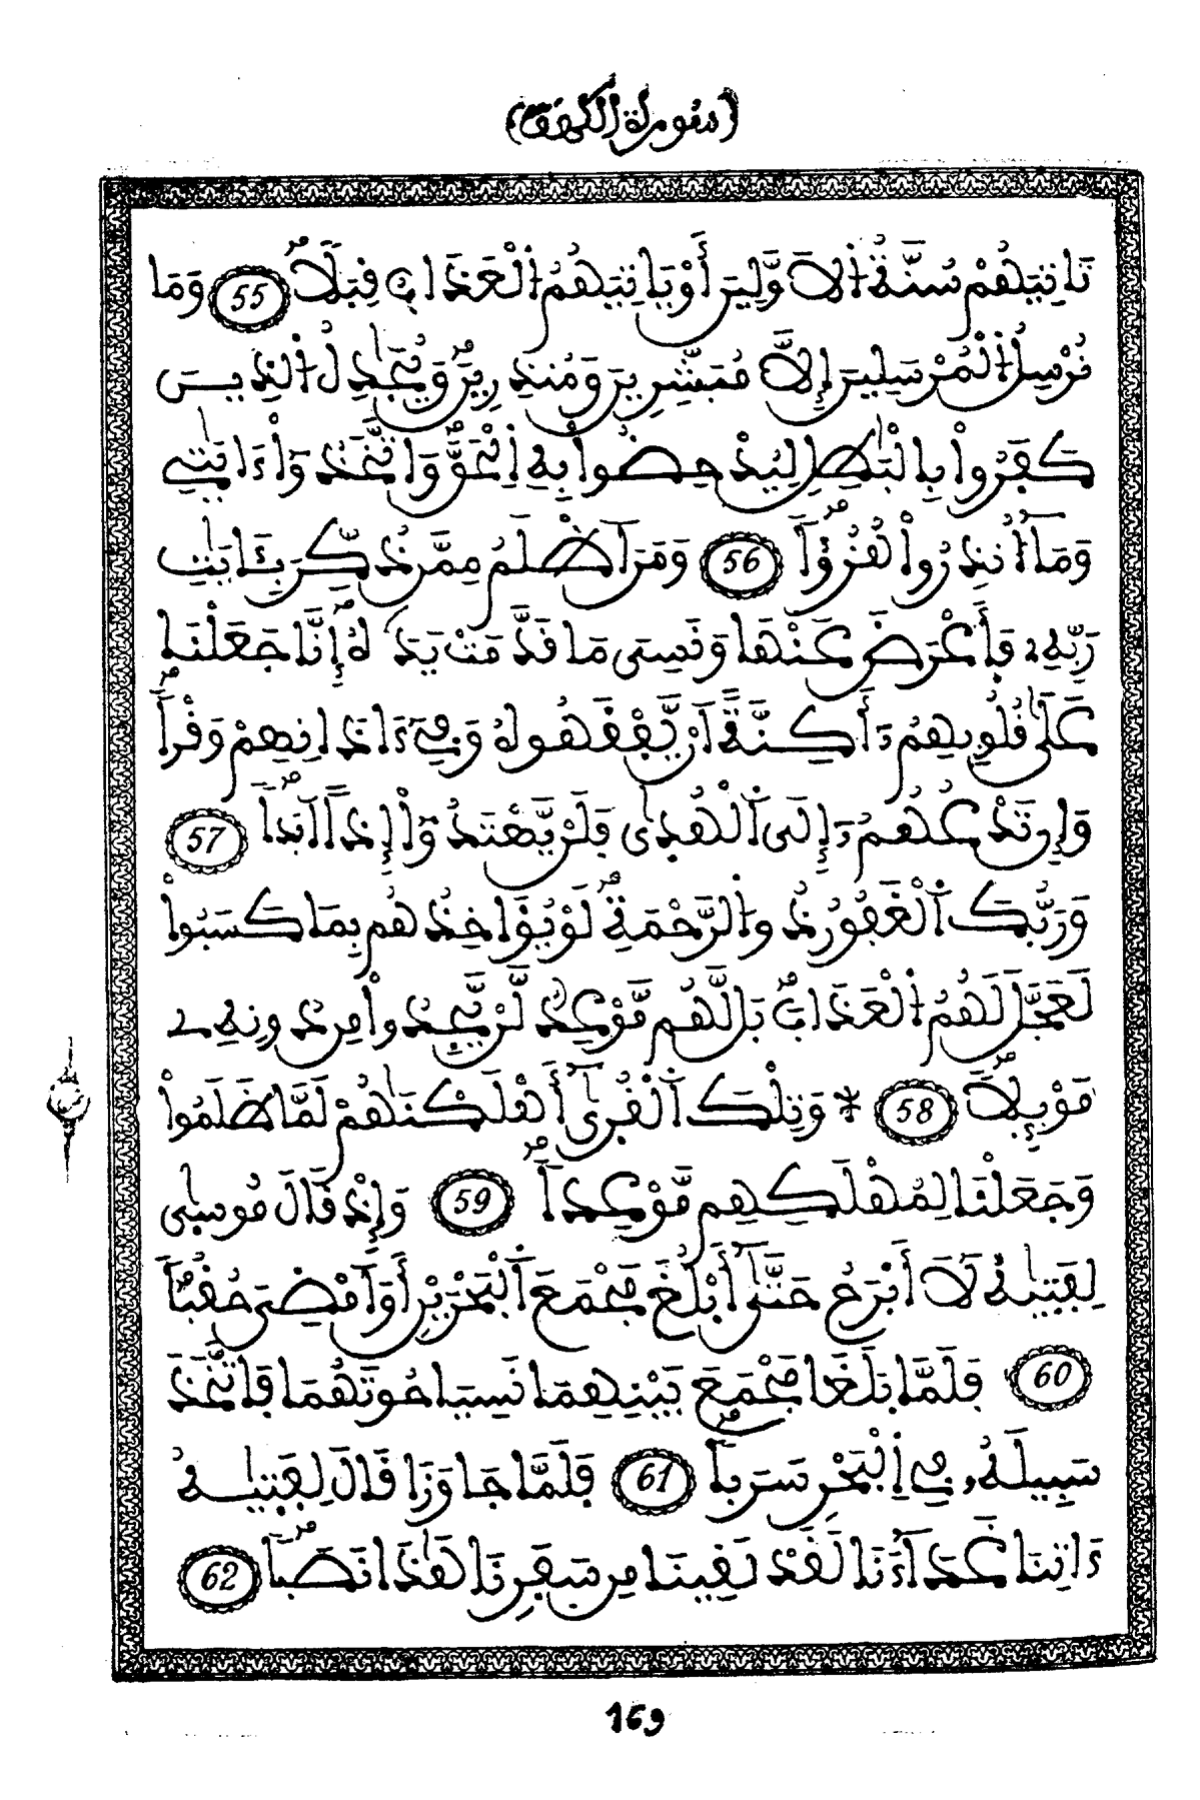 (سورة الكهف)
تَاتِيَهُمْ سُنَّةُ اُلَاوَّلِينَ أَوْ يَاتِيَهُمُ اُلْعَذَابُ قِبَلاٗ 55 وَمَا
نُرْسِلُ اُلْمُرْسَلِينَ إِلَّا مُبَشِّرِينَ وَمُنذِرِينَۖ وَيُجَٰدِلُ اُلذِينَ
كَفَرُواْ بِالْبَٰطِلِ لِيُدْحِضُواْ بِهِ اِلْحَقَّۖ وَاتَّخَذُوٓاْ ءَايَٰتِے
وَمَآ أُنذِرُواْ هُزُؤاٗۖ 56 وَمَنَ اَظْلَمُ مِمَّن ذُكِّرَ بِـَٔايَٰتِ
رَبِّهِۦ فَأَعْرَضَ عَنْهَا وَنَسِىَ مَا قَدَّمَتْ يَدَٰهُۖ إِنَّا جَعَلْنَا
عَلَىٰ قُلُوبِهِمُۥٓ أَكِنَّةً اَنْ يَّفْقَهُوهُ وَفِےٓ ءَاذَانِهِمْ وَقْراٗۖ
وَإِن تَدْعُهُمُۥٓ إِلَى اَلْهُدَىٰ فَلَنْ يَّهْتَدُوٓاْ إِذاً اَبَداٗۖ 57
وَرَبُّكَ اَلْغَفُورُ ذُو اُلرَّحْمَةِۖ لَوْ يُؤَاخِذُهُم بِمَا كَسَبُواْ
لَعَجَّلَ لَهُمُ اُلْعَذَابَۖ بَل لَّهُم مَّوْعِدٞ لَّنْ يَّجِدُواْ مِن دُونِهِۦ
مَوْئِلاٗۖ 58 * وَتِلْكَ اَلْقُرَىٰٓ أَهْلَكْنَٰهُمْ لَمَّا ظَلَمُواْ
وَجَعَلْنَا لِمُهْلَكِهِم مَّوْعِداٗۖ 59 وَإِذْ قَالَ مُوسىٰ
لِفَتَىٰهُ لَآ أَبْرَحُ حَتَّىٰٓ أَبْلُغَ مَجْمَعَ اَلْبَحْرَيْنِ أَوَ اَمْضِىَ حُقُباٗۖ
60 فَلَمَّا بَلَغَا مَجْمَعَ بَيْنِهِمَا نَسِيَا حُوتَهُمَا فَاتَّخَذَ
سَبِيلَهُۥ فِے اِلْبَحْرِ سَرَباٗۖ 61 فَلَمَّا جَاوَزَا قَالَ لِفَتَىٰهُ
ءَاتِنَا غَدَآءَنَا لَقَدْ لَقِينَا مِن سَفَرِنَا هَٰذَا نَصَباٗۖ 62
169